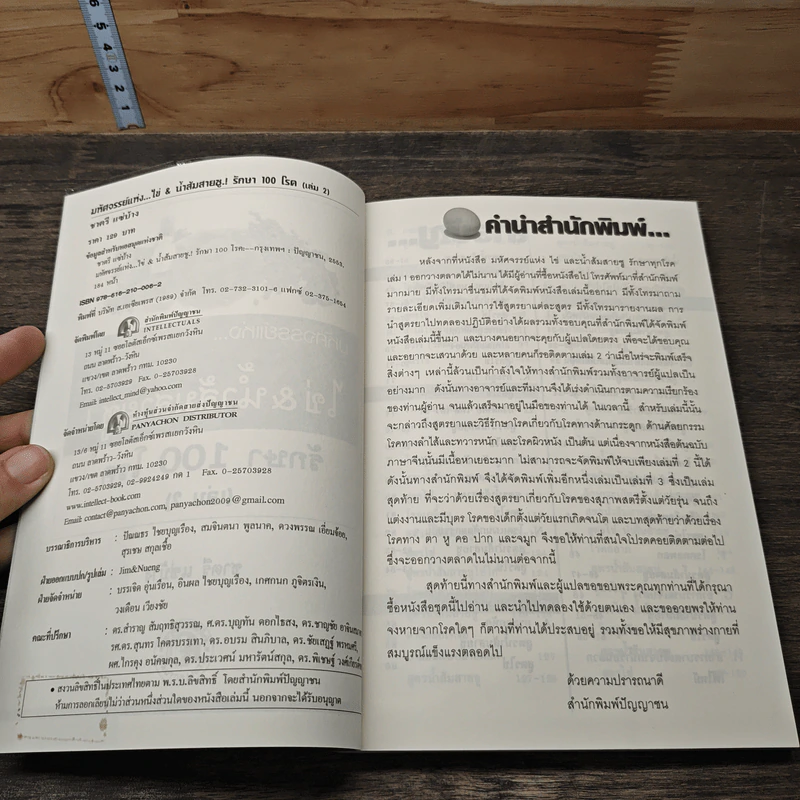 6 5 4 3 2 1
มหัศจรรย์แห่ง...ไข่ & น้ำส้มสายชู.! รักษา 100 โรค (เล่ม 2)
ชาตรี แซ่บ้าง
ราคา 129 บาท
ข้อมูลสำหรับหอสมุดแห่งชาติ
ชาตรี แซ่บ้าง
มหัศจรรย์แห่ง...ไข่ & น้ำส้มสายชู.! รักษา 100 โรค.--กรุงเทพฯ : ปัญญาชน, 2553.
184 หน้า
ISBN 978-616-210-006-2
พิมพ์ที่ บริษัท ส.เอเซียเพรส (1989) จำกัด โทร. 02-732-3101-6 แฟกซ์ 02-375-1664
จัดพิมพ์โดย สำนักพิมพ์ปัญญาชน
INTELLECTUALS
13 หมู่ 11 ซอยโลตัสเอ็กซ์เพรสเอกวังหิน
ถนน ลาดพร้าว-วังหิน
แขวง/เขต ลาดพร้าว กทม. 10230
โทร. 02-5703929 Fax. 0-25703928
Email: intellect_mind@yahoo.com
จัดจำหน่ายโดย ห้างหุ้นส่วนจำกัดสายส่งปัญญาชน
PANYACHON DISTRIBUTOR
13/6 หมู่ 11 ซอยโลตัสเอ็กซ์เพรสเอกวังหิน
ถนน ลาดพร้าว-วังหิน
แขวง/เขต ลาดพร้าว กทม. 10230
โทร. 02-5703929, 02-9924249 กด 1 Fax. 0-25703928
www.intellect-book.com
Email: contact@panyachon.com, panyachon2009@gmail.com
บรรณาธิการบริหาร : ปัณณธร ไชยบุญเรือง, สมจินตนา พูลนาค, ดวงพรรณ เอี่ยมจ้อย,
สุรเชน สกุลเชื้อ
ฝ่ายออกแบบปก/รูปเล่ม : Jim&Nueng
ฝ่ายจัดจำหน่าย : บรรเจิด อุ่นเรือน, อินผล ไชยบุญเรือง, เกศกนก ภูจิตรเงิน,
วงเดือน เวียงชัย
คณะที่ปรึกษา : ดร.สำราญ สัมฤทธิสุวรรณ, ศ.ดร.บุญทัน ดอกไธสง, ดร.ชาญชัย
รศ.ดร.สุนทร โคตรบรรเทา, ดร.อบรม สินภิบาล, ดร.ชัยเสฏฐ์ พรหมศรี,
ผศ.ไกรคุง อนัคฆกุล, ดร.ประเวศน์ มหารัตน์สกุล, ดร.พิเชษฐ์
• สงวนลิขสิทธิ์ในประเทศไทยตาม พ.ร.บ.ลิขสิทธิ์ โดยสำนักพิมพ์ปัญญาชน
ห้ามการลอกเลียนไม่ว่าส่วนหนึ่งส่วนใดของหนังสือเล่มนี้ นอกจากจะได้รับอนุญาต
คำนำสำนักพิมพ์...
หลังจากที่หนังสือ มหัศจรรย์แห่ง ไข่ และน้ำส้มสายชู รักษาทุกโรค
เล่ม 1 ออกวางตลาดได้ไม่นาน ได้มีผู้อ่านที่ซื้อหนังสือไป โทรศัพท์มาที่สำนักพิมพ์
มากมาย มีทั้งโทรมาชื่นชมที่ได้จัดพิมพ์หนังสือเล่มนี้ออกมา มีทั้งโทรมาถาม
รายละเอียดเพิ่มเติมในการใช้สูตรยาแต่ละสูตร มีทั้งโทรมารายงานผล การ
นำสูตรยาไปทดลองปฏิบัติอย่างได้ผลรวมทั้งขอบคุณที่สำนักพิมพ์ได้จัดพิมพ์
หนังสือเล่มนี้ขึ้นมา และบางคนอยากจะคุยกับผู้แปลโดยตรง เพื่อจะได้ขอบคุณ
และอยากจะเสวนาด้วย และหลายคนก็รอติดตามเล่ม 2 ว่าเมื่อไหร่จะพิมพ์เสร็จ
สิ่งต่างๆ เหล่านี้ล้วนเป็นกำลังใจให้ทางสำนักพิมพ์รวมทั้งอาจารย์ผู้แปลเป็น
อย่างมาก ดังนั้นทางอาจารย์และทีมงานจึงได้เร่งดำเนินการตามความเรียกร้อง
ของท่านผู้อ่าน จนแล้วเสร็จมาอยู่ในมือของท่านได้ ในเวลานี้ สำหรับเล่มนี้นั้น
จะกล่าวถึงสูตรยาและวิธีรักษาโรคเกี่ยวกับโรคทางด้านกระดูก ด้านศัลยกรรม
โรคทางลำไส้และทวารหนัก และโรคผิวหนัง เป็นต้น แต่เนื่องจากหนังสือต้นฉบับ
ภาษาจีนนั้นมีเนื้อหาเยอะมาก ไม่สามารถจะจัดพิมพ์ให้จบเพียงเล่มที่ 2 นี้ได้
ดังนั้นทางสำนักพิมพ์ จึงได้จัดพิมพ์เพิ่มอีกหนึ่งเล่มเป็นเล่มที่ 3 ซึ่งเป็นเล่ม
สุดท้าย ที่จะว่าด้วยเรื่องสูตรยาเกี่ยวกับโรคของสุภาพสตรีตั้งแต่วัยรุ่น จนถึง
แต่งงานและมีบุตร โรคของเด็กตั้งแต่วัยแรกเกิดจนโต และบทสุดท้ายว่าด้วยเรื่อง
โรคทาง ตา หู คอ ปาก และจมูก จึงขอให้ท่านที่สนใจโปรดคอยติดตามต่อไป
ซึ่งจะออกวางตลาดในไม่นานต่อจากนี้
สุดท้ายนี้ทางสำนักพิมพ์และผู้แปลขอขอบพระคุณทุกท่านที่ได้กรุณา
ซื้อหนังสือชุดนี้ไปอ่าน และนำไปทดลองใช้ด้วยตนเอง และขออวยพรให้ท่าน
จงหายจากโรคใดๆ ก็ตามที่ท่านได้ประสบอยู่ รวมทั้งขอให้มีสุขภาพร่างกายที่
สมบูรณ์แข็งแรงตลอดไป
ด้วยความปรารถนาดี
สำนักพิมพ์ปัญญาชน